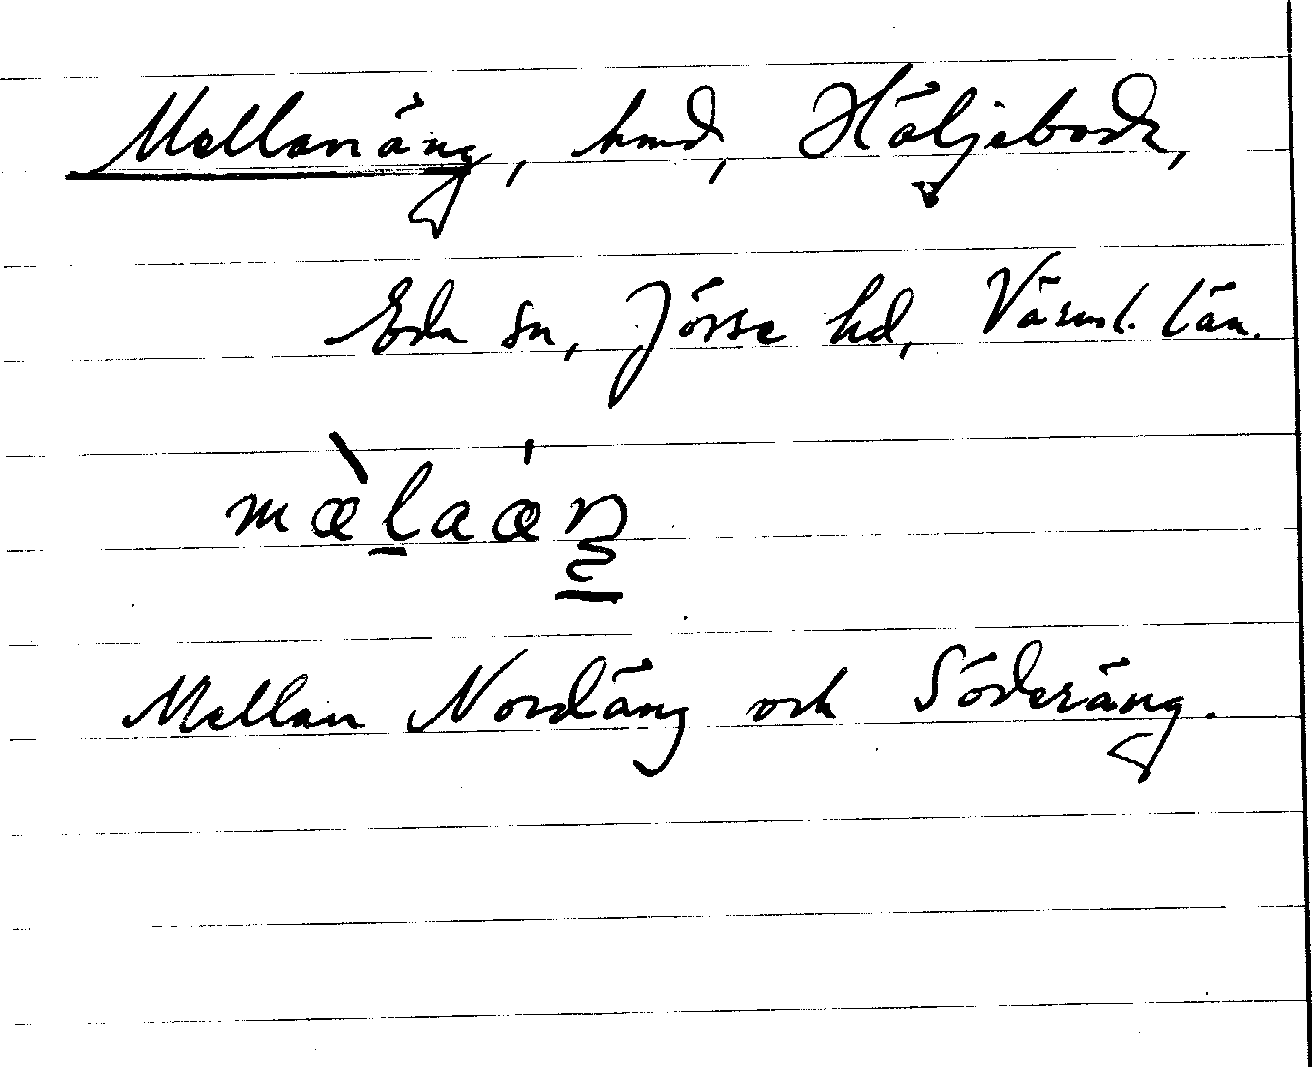 Mellanäng, hmd, Häljeboda,
Eda sn, Jösse hd, Värml. län.
mæ̀l̠aæ̍ŋ̠
Mellan Nordäng och Söderäng.